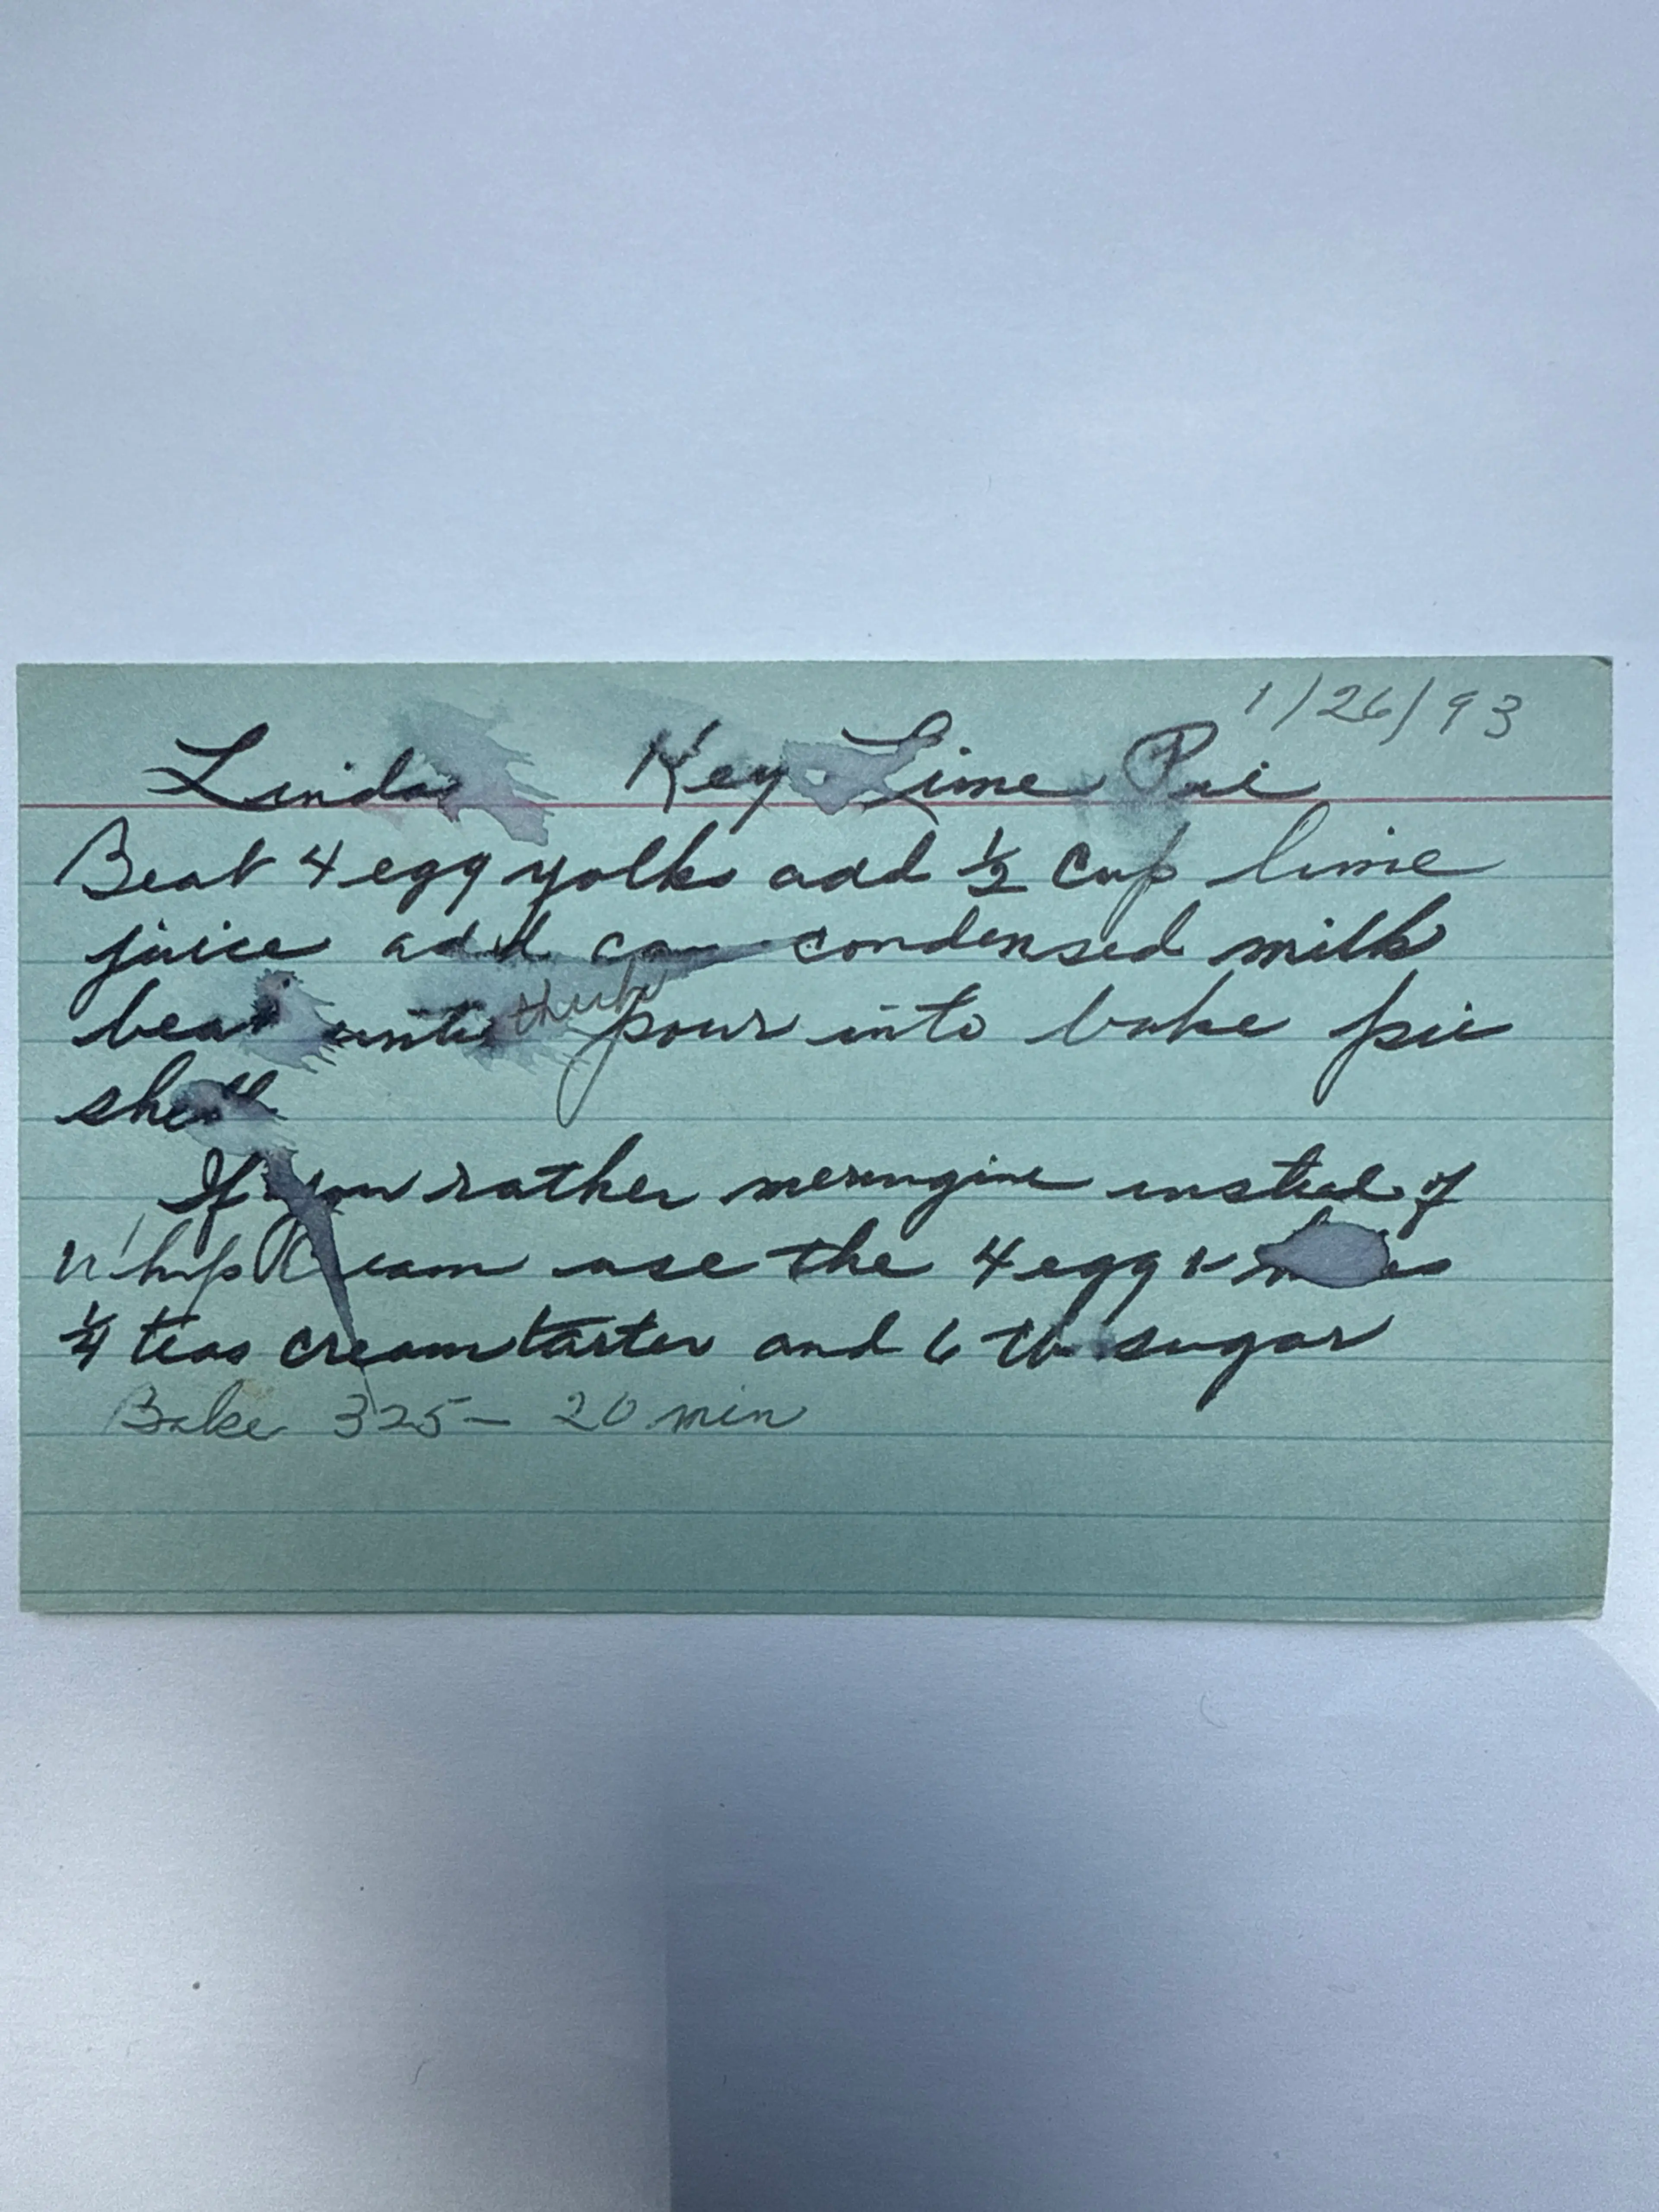 1/26/93
Linda Key Lime Pie
Beat 4 egg yolks add 1/2 cup lime
juice add can condensed milk
beat until thick pour into bake pie
shell
If you rather merengine instead of
Whip Cream use the 4 egg whites
1/4 teas cream tarter and 6 tb sugar
Bake 325 – 20 min